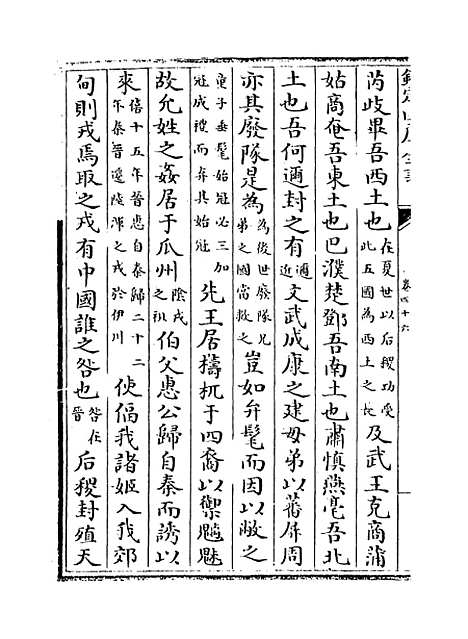 欽定四庫全書
卷四十六
芮岐畢吾西土也在夏世以后稷功受此五國為西土之長及武王克商蒲
姑商奄吾東土也巴濮楚鄧吾南土也肅慎燕亳吾北
土也吾何邇封之有邇近文武成康之建母弟以蕃屏周
亦其廢隊是為為後世廢隊兄弟之國當救之豈如弁髦而因以敝之
童子垂髦始冠必三加冠成禮而弃其始冠先王居檮杌于四裔以禦魑魅
故允姓之姦居于瓜州陰戎之祖伯父惠公歸自秦而誘以
來僖十五年晉惠自秦歸二十二年秦晉遷陸渾之戎於伊川使偪我諸姬入我郊
甸則戎焉取之戎有中國誰之咎也咎在晉后稷封殖天